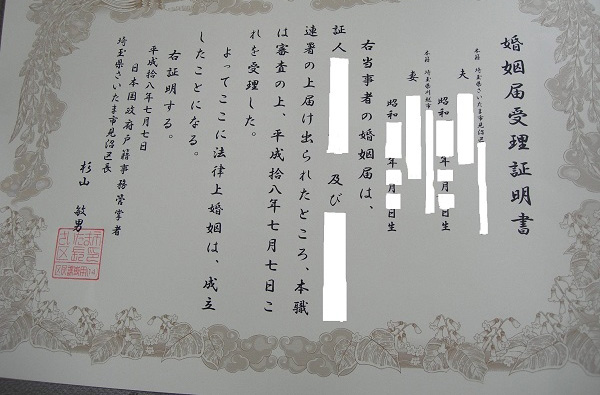 婚姻届受理証明書
本籍 埼玉県さいたま市見沼区
夫
昭和 年 月 日生
本籍 埼玉県川越市
妻
昭和 年 月 日生
右当事者の婚姻届は、
証人 及び
連署の上届け出られたところ、本職
は審査の上、平成拾八年七月七日こ
れを受理した。
よってここに法律上婚姻は、成立
したことになる。
右証明する。
平成拾八年七月七日
日本国政府戸籍事務管掌者
埼玉県さいたま市見沼区長 杉山 敏男